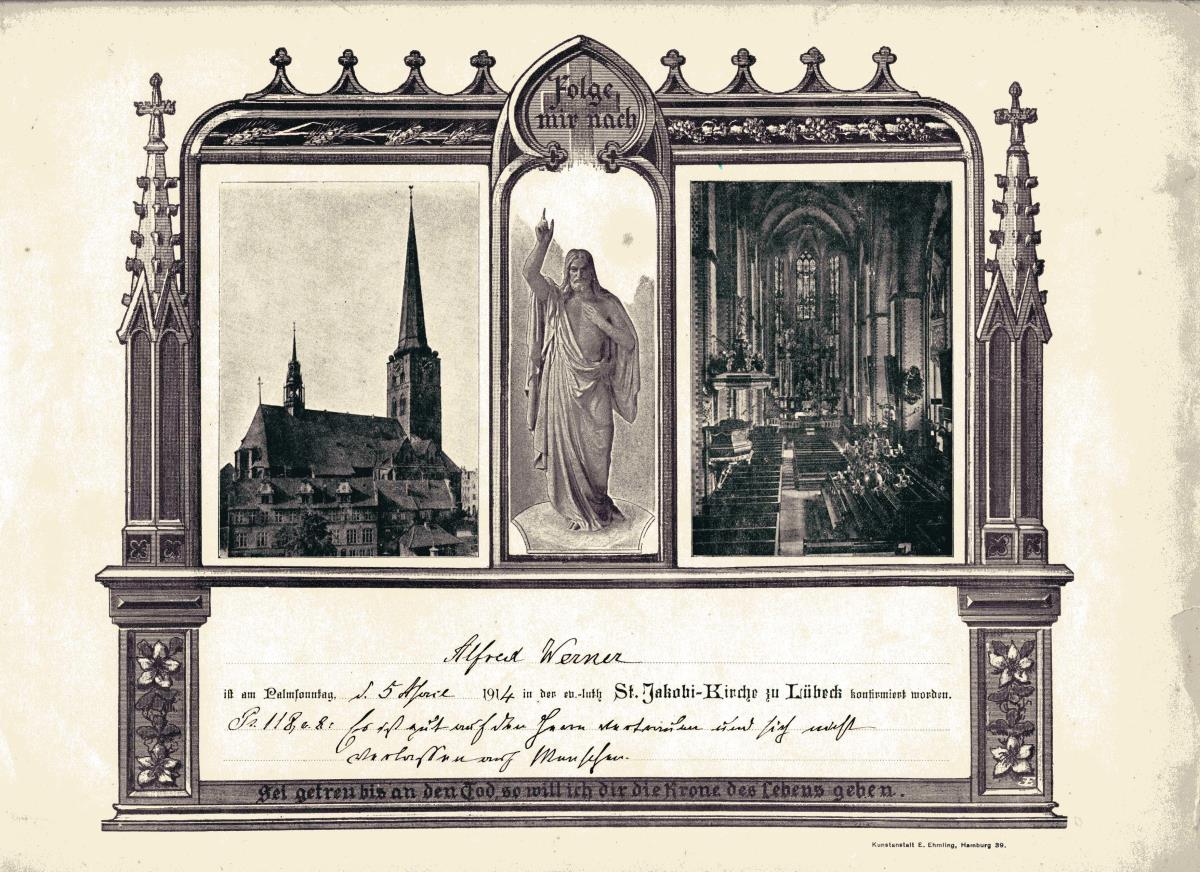 Folge
mir nach
Alfred Werner
ist am Palmsonntag, d. 5 April 1914 in der ev.-luth St. Jakobi-Kirche zu Lübeck konfirmiert worden.
Ps. 118, v. 8: Es ist gut auf den Herrn vertrauen und sich nicht
verlassen auf Menschen.
Sei getreu bis an den Tod, so will ich dir die Krone des Lebens geben.
Kunstanstalt E. Ehmling, Hamburg 39.